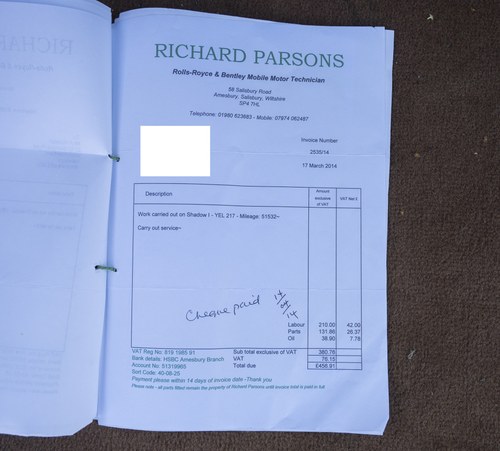 RICHARD PARSONS
Rolls-Royce & Bentley Mobile Motor Technician
58 Salisbury Road
Amesbury, Salisbury, Wiltshire
SP4 7HL
Telephone: 01980 623683 - Mobile: 07974 062487
Invoice Number
2535/14
17 March 2014
Description
Amount exclusive of VAT
VAT Net £
Work carried out on Shadow I - YEL 217 - Mileage: 51532~
Carry out service~
Cheque paid
Labour 210.00 42.00
Parts 131.86 26.37
Oil 38.90 7.78
VAT Reg No: 819 1985 91 Sub total exclusive of VAT 380.76
Bank details: HSBC Amesbury Branch VAT 76.15
Account No: 51319965 Total due £456.91
Sort Code: 40-08-25
Payment please within 14 days of invoice date - Thank you
Please note - all parts fitted remain the property of Richard Parsons until invoice total is paid in full